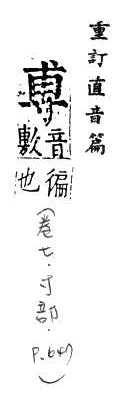 重訂直音篇
尃
音敷
徧也
(卷七·寸部·